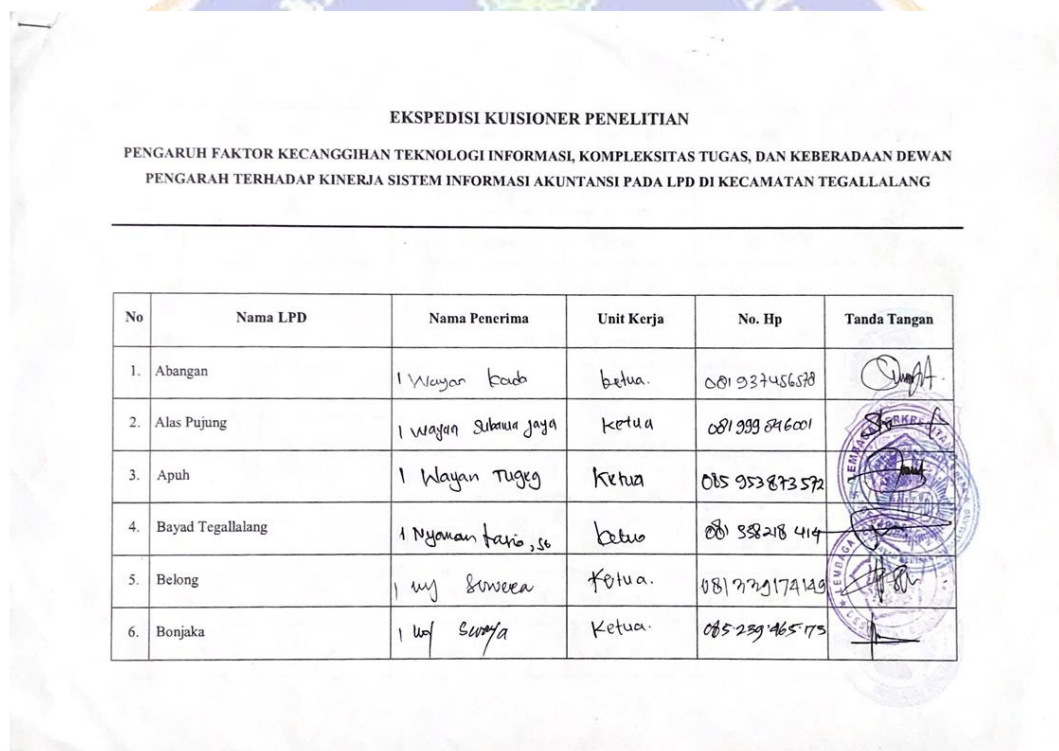 EKSPEDISI KUISIONER PENELITIAN
PENGARUH FAKTOR KECANGGIHAN TEKNOLOGI INFORMASI, KOMPLEKSITAS TUGAS, DAN KEBERADAAN DEWAN
PENGARAH TERHADAP KINERJA SISTEM INFORMASI AKUNTANSI PADA LPD DI KECAMATAN TEGALLALANG
No Nama LPD Nama Penerima Unit Kerja No. Hp Tanda Tangan
1. Abangan I Wayan ketua.
2. Alas Pujung I Wayan Subawa Jaya Ketua
3. Apuh I Wayan Tugeg Ketua 085 953 873 572
4. Bayad Tegallalang I Nyoman ketua 081 338218 414
5. Belong I Ketua.
6. Bonjaka I Ketua. 085.239.465.173